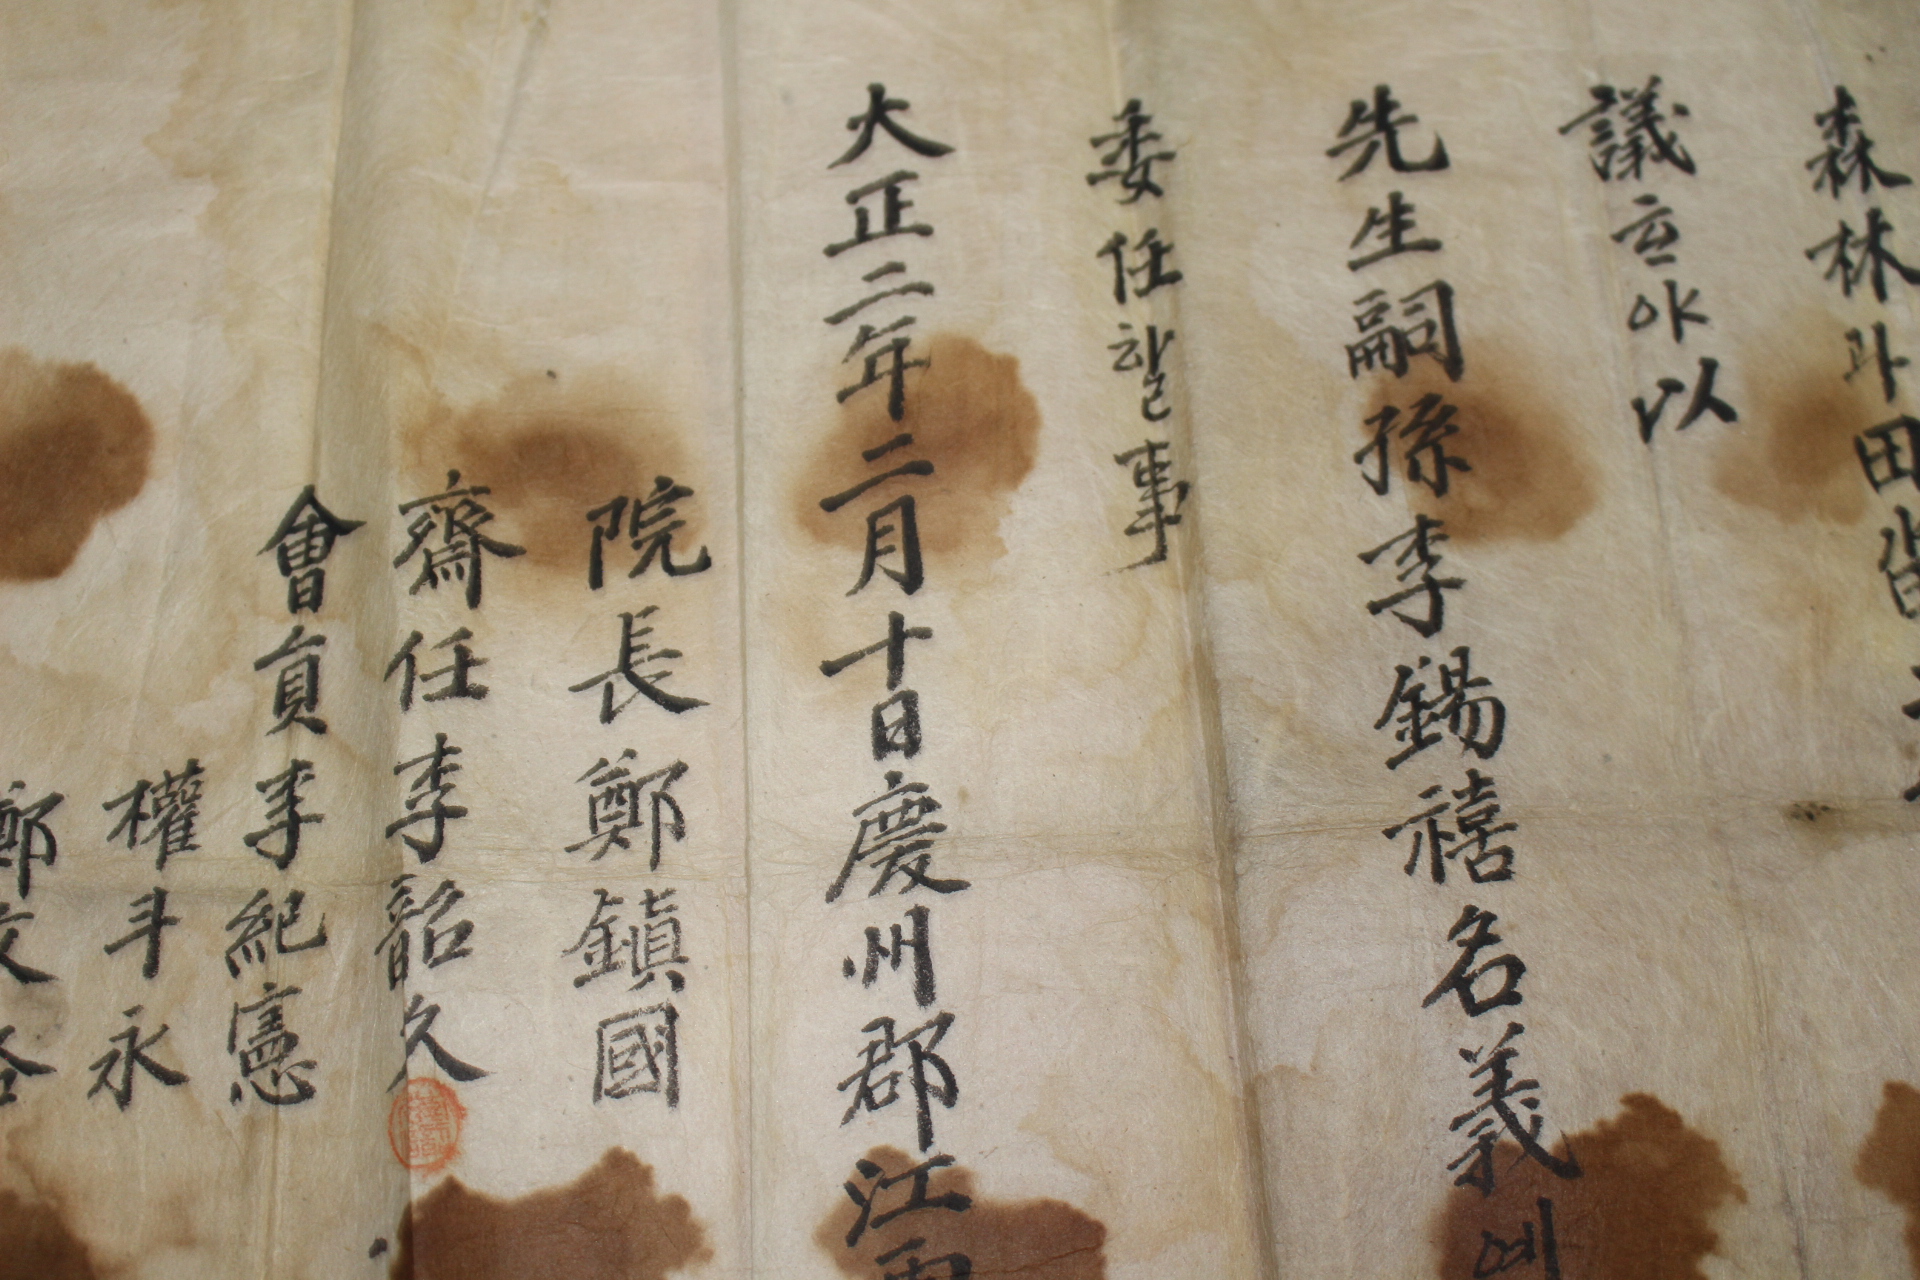 森林과田畓
議고야以
先生嗣孫李錫禧名義예
委任할事
大正二年二月十日慶州郡江西
院長鄭鎭國
齋任李韶久
會員李紀憲
權斗永
鄭